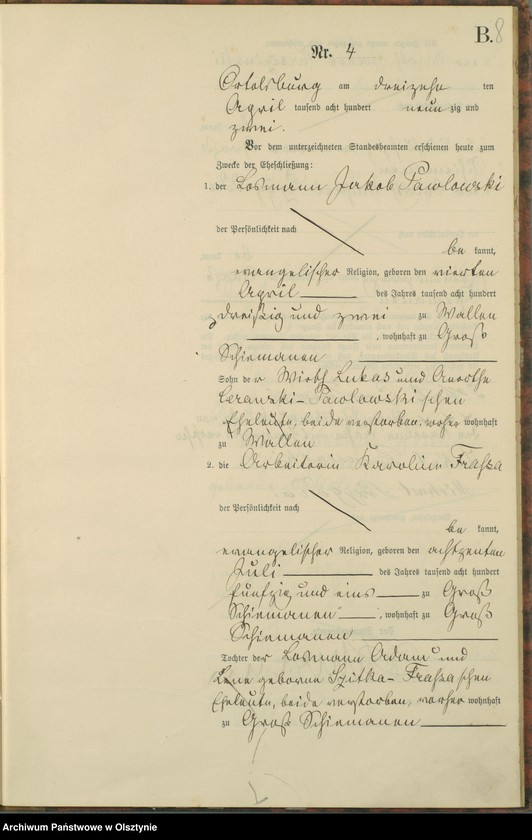 B. 8
Nr. 4
Ortelsburg am dreizehn ten
April tausend acht hundert neun zig und
zwei.
Vor dem unterzeichneten Standesbeamten erschienen heute zum
Zwecke der Eheschließung:
1. der Losmann Jakob Pawlowski
der Persönlichkeit nach
be kannt,
evangelischer Religion, geboren den vierten
April des Jahres tausend acht hundert
dreißig und zwei zu Wallen
, wohnhaft zu Groß
Schiemanen
Sohn der Wirth Lukas und
Pawlowski'schen
Eheleute, beide verstorben, vorher wohnhaft
zu Wallen
2. die Arbeiterin Karoline Frassa
der Persönlichkeit nach
be kannt,
evangelischer Religion, geboren den achtzehnten
Juli des Jahres tausend acht hundert
fünfzig und eins zu Groß
Schiemanen , wohnhaft zu Groß
Schiemanen
Tochter der Losmann Adam und
geborene Frassa'schen
Eheleute, beide verstorben, vorher wohnhaft
zu Groß Schiemanen
Archiwum Państwowe w Olsztynie